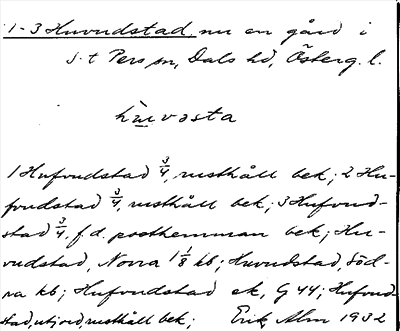 1-3 Huvudstad nu en gård i
S:t Pers sn, Dals hd, Österg. l.
hùvǝsta
1 Hufvudstad 3/4, rusthåll bek; 2 Hu-
fvudstad 3/4, rusthåll bek; 3 Hufvud-
stad 3/4, f.d. posthemman bek; Hu-
vudstad, Norra 1 1/8 kb; Huvudstad, söd-
ra kb; Hufvudstad ek, G 44; Hufvud-
stad, utjord, rusthåll bek; Erik Alm 1932